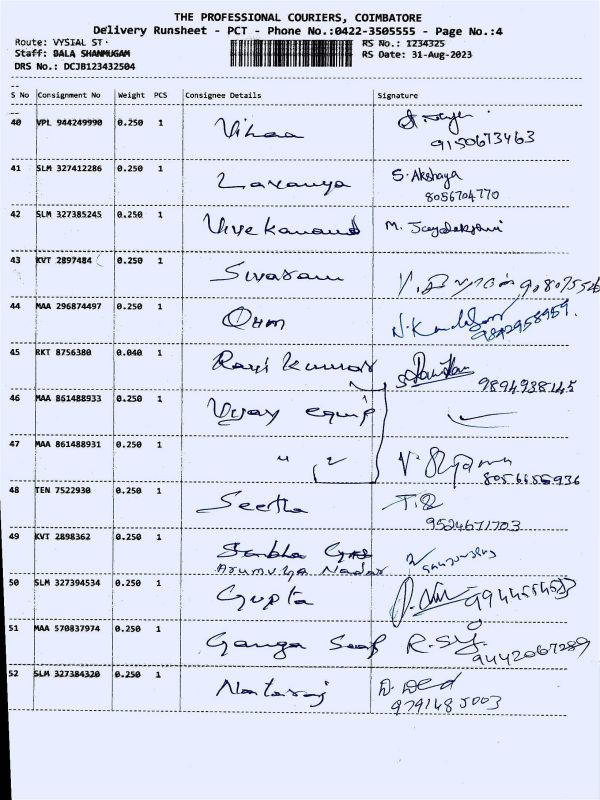 THE PROFESSIONAL COURIERS, COIMBATORE
Delivery Runsheet - PCT - Phone No.:0422-3505555 - Page No.:4
Route: VYSIAL ST. RS No.: 1234325
Staff: BALA SHANMUGAM RS Date: 31-Aug-2023
DRS No.: DCJB123432504
S No Consignment No Weight PCS Consignee Details Signature
40 VPL 944249990 0.250 1 Vihaa
9150673463
41 SLM 327412286 0.250 1 Lavanya S. Akshaya
8056704770
42 SLM 327385245 0.250 1 Vivekanand M.
43 KVT 2897484 0.250 1 Sivaram
44 MAA 296874497 0.250 1 Ohm
9842958959.
45 RKT 8756380 0.040 1 Ravi Kumar
9894938145
46 MAA 861488933 0.250 1 Vijay equip
47 MAA 861488931 0.250 1 "
8056656936
48 TEN 7522930 0.250 1 Seetha
9524671703
49 KVT 2898362 0.250 1
Arumuga Nadar
50 SLM 327394534 0.250 1 Gupta
51 MAA 570837974 0.250 1 Ganga
9442067289
52 SLM 327384320 0.250 1 Nataraj
9791485003